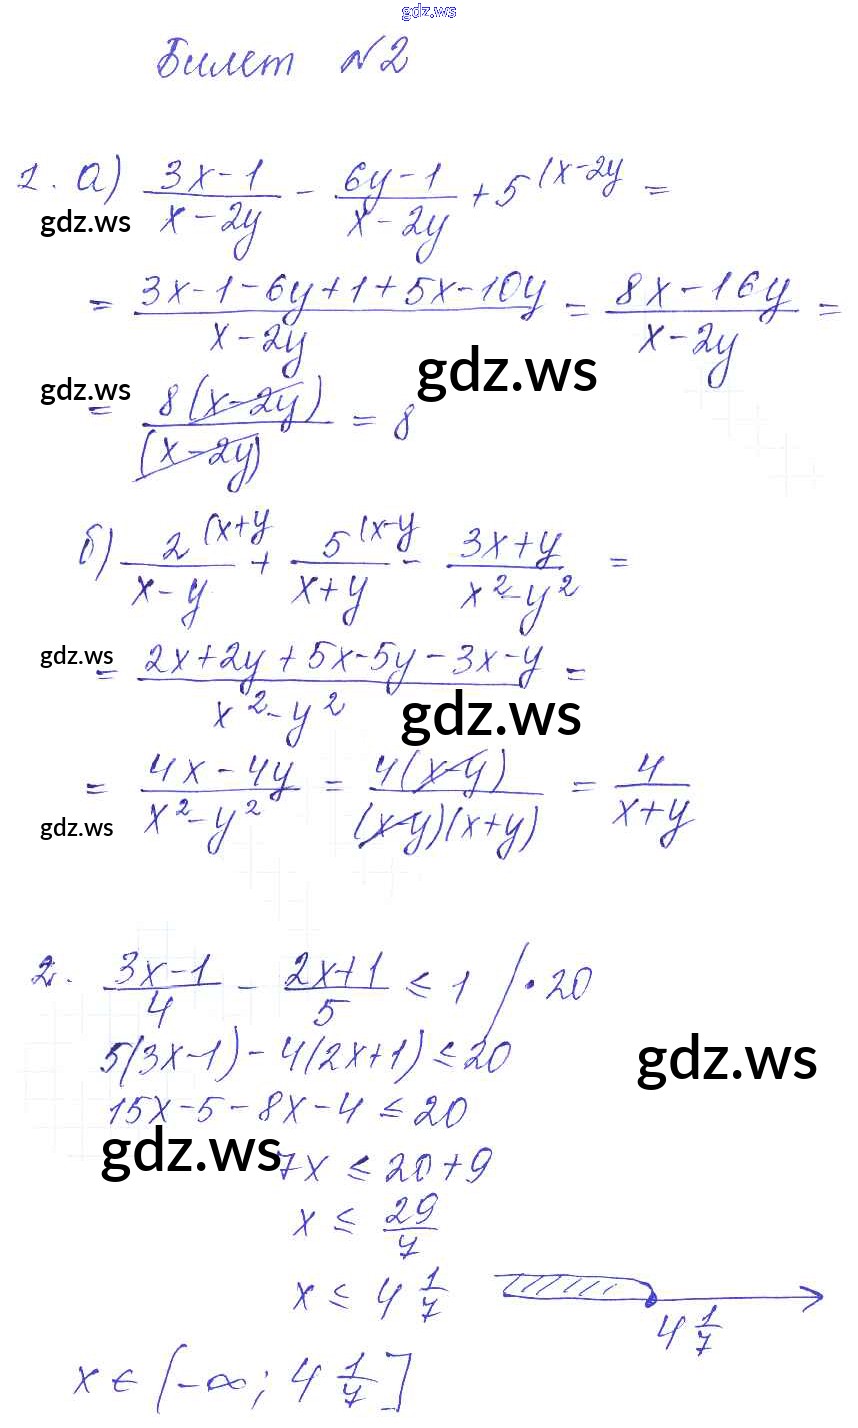 gdz.ws
Билет №2
1. а) (3x-1)/(x-2y) - (6y-1)/(x-2y) + 5 (x-2y =
gdz.ws
= (3x-1-6y+1+5x-10y)/(x-2y) = (8x-16y)/(x-2y) =
gdz.ws
gdz.ws
= 8(x-2y)/(x-2y) = 8
б) 2 (x+y/(x-y) + 5 (x-y/(x+y) - (3x+y)/(x²-y²) =
gdz.ws
= (2x+2y+5x-5y-3x-y)/(x²-y²) =
gdz.ws
= (4x-4y)/(x²-y²) = 4(x-y)/(x-y)(x+y) = 4/(x+y)
gdz.ws
2. (3x-1)/4 - (2x+1)/5 ≤ 1 / · 20
5(3x-1) - 4(2x+1) ≤ 20
gdz.ws
15x-5-8x-4 ≤ 20
gdz.ws
7x ≤ 20+9
x ≤ 29/7
x ≤ 4 1/7
4 1/7
x ∈ (-∞; 4 1/7]